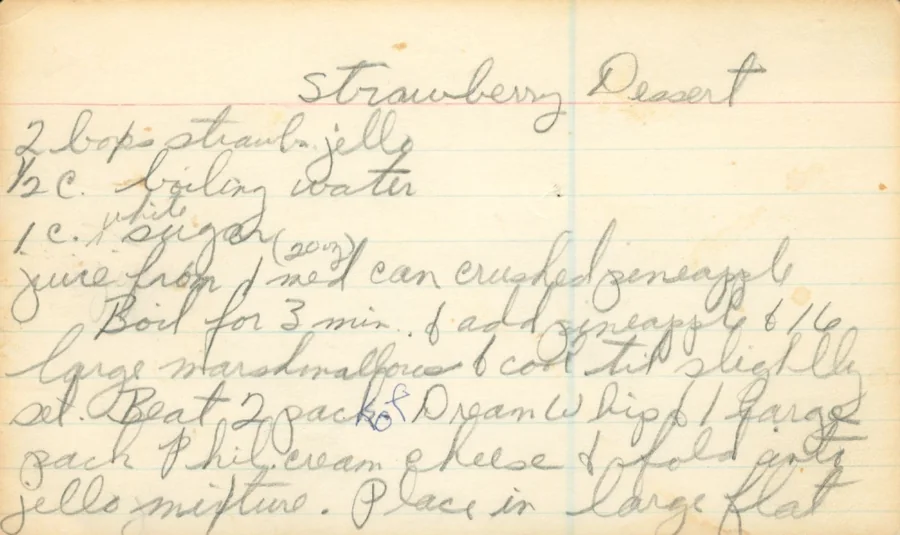 Strawberry Dessert
2 boxs strawb. jello
1/2 c. boiling water
1 c. white sugar
juice from 1 med (20oz) can crushed pineapple
Boil for 3 min. & add pineapple & 16
large marshmallows & cool till slightly
set. Beat 2 packs of Dream Whip & 1 large
pack Phil. cream cheese & fold into
jello mixture. Place in large flat